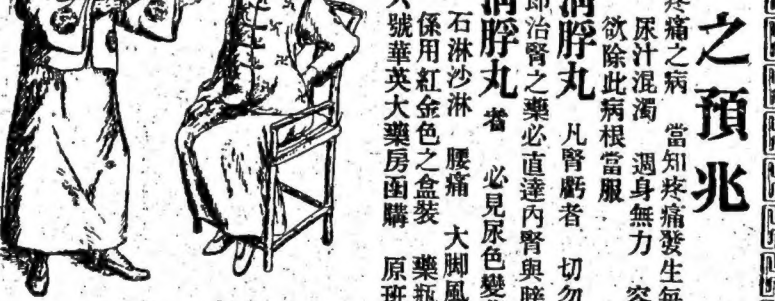 之預兆
疼痛之病　當知疼痛發生每
尿汁混濁　週身無力　容
欲除此病根當服
脬丸　凡腎虧者　切勿
即治腎之藥必直達內腎與膀
脬丸者　必見尿色變
石淋沙淋　腰痛　大脚風
係用紅金色之盒裝　藥瓶
號華英大藥房函購　原班